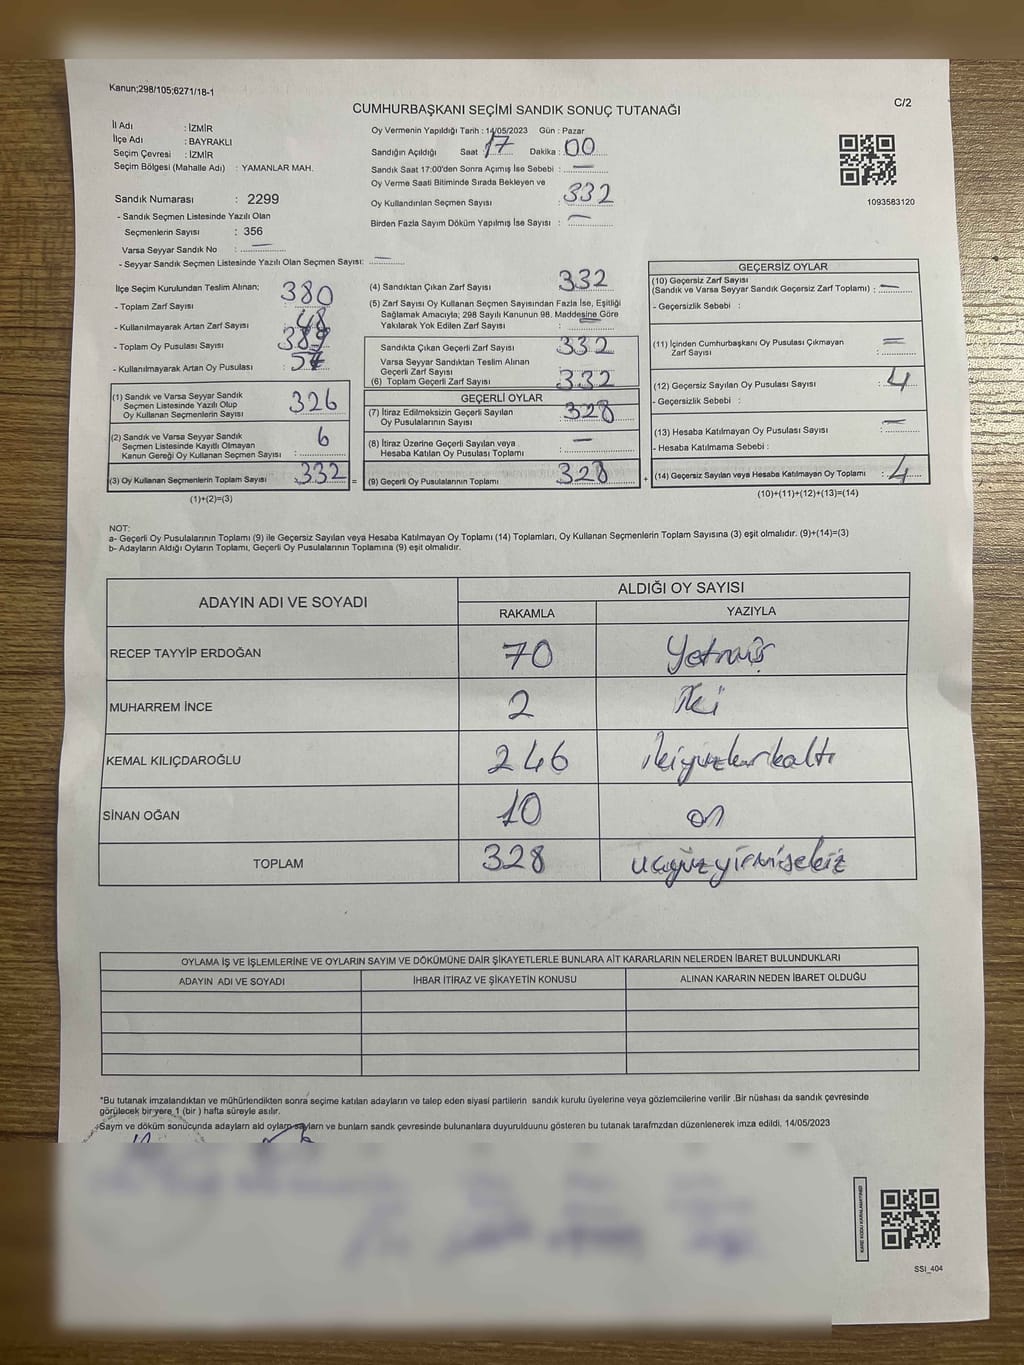 Kanun;298/105;6271/18-1
CUMHURBAŞKANI SEÇİMİ SANDIK SONUÇ TUTANAĞI
C/2
İl Adı : İZMİR
İlçe Adı : BAYRAKLI
Seçim Çevresi : İZMİR
Seçim Bölgesi (Mahalle Adı) : YAMANLAR MAH.
Sandık Numarası : 2299
- Sandık Seçmen Listesinde Yazılı Olan
Seçmenlerin Sayısı : 356
Varsa Seyyar Sandık No : —
- Seyyar Sandık Seçmen Listesinde Yazılı Olan Seçmen Sayısı: —
Oy Vermenin Yapıldığı Tarih : 14/05/2023 Gün : Pazar
Sandığın Açıldığı Saat : 17 Dakika : 00
Sandık Saat 17:00'den Sonra Açımış İse Sebebi : —
Oy Verme Saati Bitiminde Sırada Bekleyen ve
Oy Kullandırılan Seçmen Sayısı : 332
Birden Fazla Sayım Döküm Yapılmış İse Sayısı : —
1093583120
İlçe Seçim Kurulundan Teslim Alınan;
- Toplam Zarf Sayısı : 380
- Kullanılmayarak Artan Zarf Sayısı : 48
- Toplam Oy Pusulası Sayısı
- Kullanılmayarak Artan Oy Pusulası
(1) Sandık ve Varsa Seyyar Sandık
Seçmen Listesinde Yazılı Olup
Oy Kullanan Seçmenlerin Sayısı : 326
(2) Sandık ve Varsa Seyyar Sandık
Seçmen Listesinde Kayıtlı Olmayan
Kanun Gereği Oy Kullanan Seçmen Sayısı : 6
(3) Oy Kullanan Seçmenlerin Toplam Sayısı : 332 =
(1)+(2)=(3)
(4) Sandıktan Çıkan Zarf Sayısı : 332
(5) Zarf Sayısı Oy Kullanan Seçmen Sayısından Fazla İse, Eşitliği
Sağlamak Amacıyla; 298 Sayılı Kanunun 98. Maddesine Göre
Yakılarak Yok Edilen Zarf Sayısı : —
Sandıkta Çıkan Geçerli Zarf Sayısı : 332
Varsa Seyyar Sandıktan Teslim Alınan
Geçerli Zarf Sayısı
(6) Toplam Geçerli Zarf Sayısı : 332
GEÇERLİ OYLAR
(7) İtiraz Edilmeksizin Geçerli Sayılan
Oy Pusulalarının Sayısı : 328
(8) İtiraz Üzerine Geçerli Sayılan veya
Hesaba Katılan Oy Pusulası Toplamı : —
(9) Geçerli Oy Pusulalarının Toplamı : 328 +
GEÇERSİZ OYLAR
(10) Geçersiz Zarf Sayısı
(Sandık ve Varsa Seyyar Sandık Geçersiz Zarf Toplamı) : —
- Geçersizlik Sebebi :
(11) İçinden Cumhurbaşkanı Oy Pusulası Çıkmayan
Zarf Sayısı : —
(12) Geçersiz Sayılan Oy Pusulası Sayısı : 4
- Geçersizlik Sebebi :
(13) Hesaba Katılmayan Oy Pusulası Sayısı : —
- Hesaba Katılmama Sebebi :
(14) Geçersiz Sayılan veya Hesaba Katılmayan Oy Toplamı : 4
(10)+(11)+(12)+(13)=(14)
NOT:
a- Geçerli Oy Pusulalarının Toplamı (9) ile Geçersiz Sayılan veya Hesaba Katılmayan Oy Toplamı (14) Toplamları, Oy Kullanan Seçmenlerin Toplam Sayısına (3) eşit olmalıdır. (9)+(14)=(3)
b- Adayların Aldığı Oyların Toplamı, Geçerli Oy Pusulalarının Toplamına (9) eşit olmalıdır.
ADAYIN ADI VE SOYADI
ALDIĞI OY SAYISI
RAKAMLA YAZIYLA
RECEP TAYYİP ERDOĞAN 70 Yetmiş
MUHARREM İNCE 2 İki
KEMAL KILIÇDAROĞLU 246 ikiyüzkırkaltı
SİNAN OĞAN 10 on
TOPLAM 328 ucyüzyirmisekiz
OYLAMA İŞ VE İŞLEMLERİNE VE OYLARIN SAYIM VE DÖKÜMÜNE DAİR ŞİKAYETLERLE BUNLARA AİT KARARLARIN NELERDEN İBARET BULUNDUKLARI
ADAYIN ADI VE SOYADI İHBAR İTİRAZ VE ŞİKAYETİN KONUSU ALINAN KARARIN NEDEN İBARET OLDUĞU
*Bu tutanak imzalandıktan ve mühürlendikten sonra seçime katılan adayların ve talep eden siyasi partilerin sandık kurulu üyelerine veya gözlemcilerine verilir .Bir nüshası da sandık çevresinde
görülecek bir yere 1 (bir ) hafta süreyle asılır.
Sayım ve döküm sonucunda adayların ald oyların sayların ve bunlarn sandk çevresinde bulunanlara duyurulduunu gösteren bu tutanak tarafmzdan düzenlenerek imza edildi. 14/05/2023
KARE KODU KARALAMAYINIZ!
SSI_404